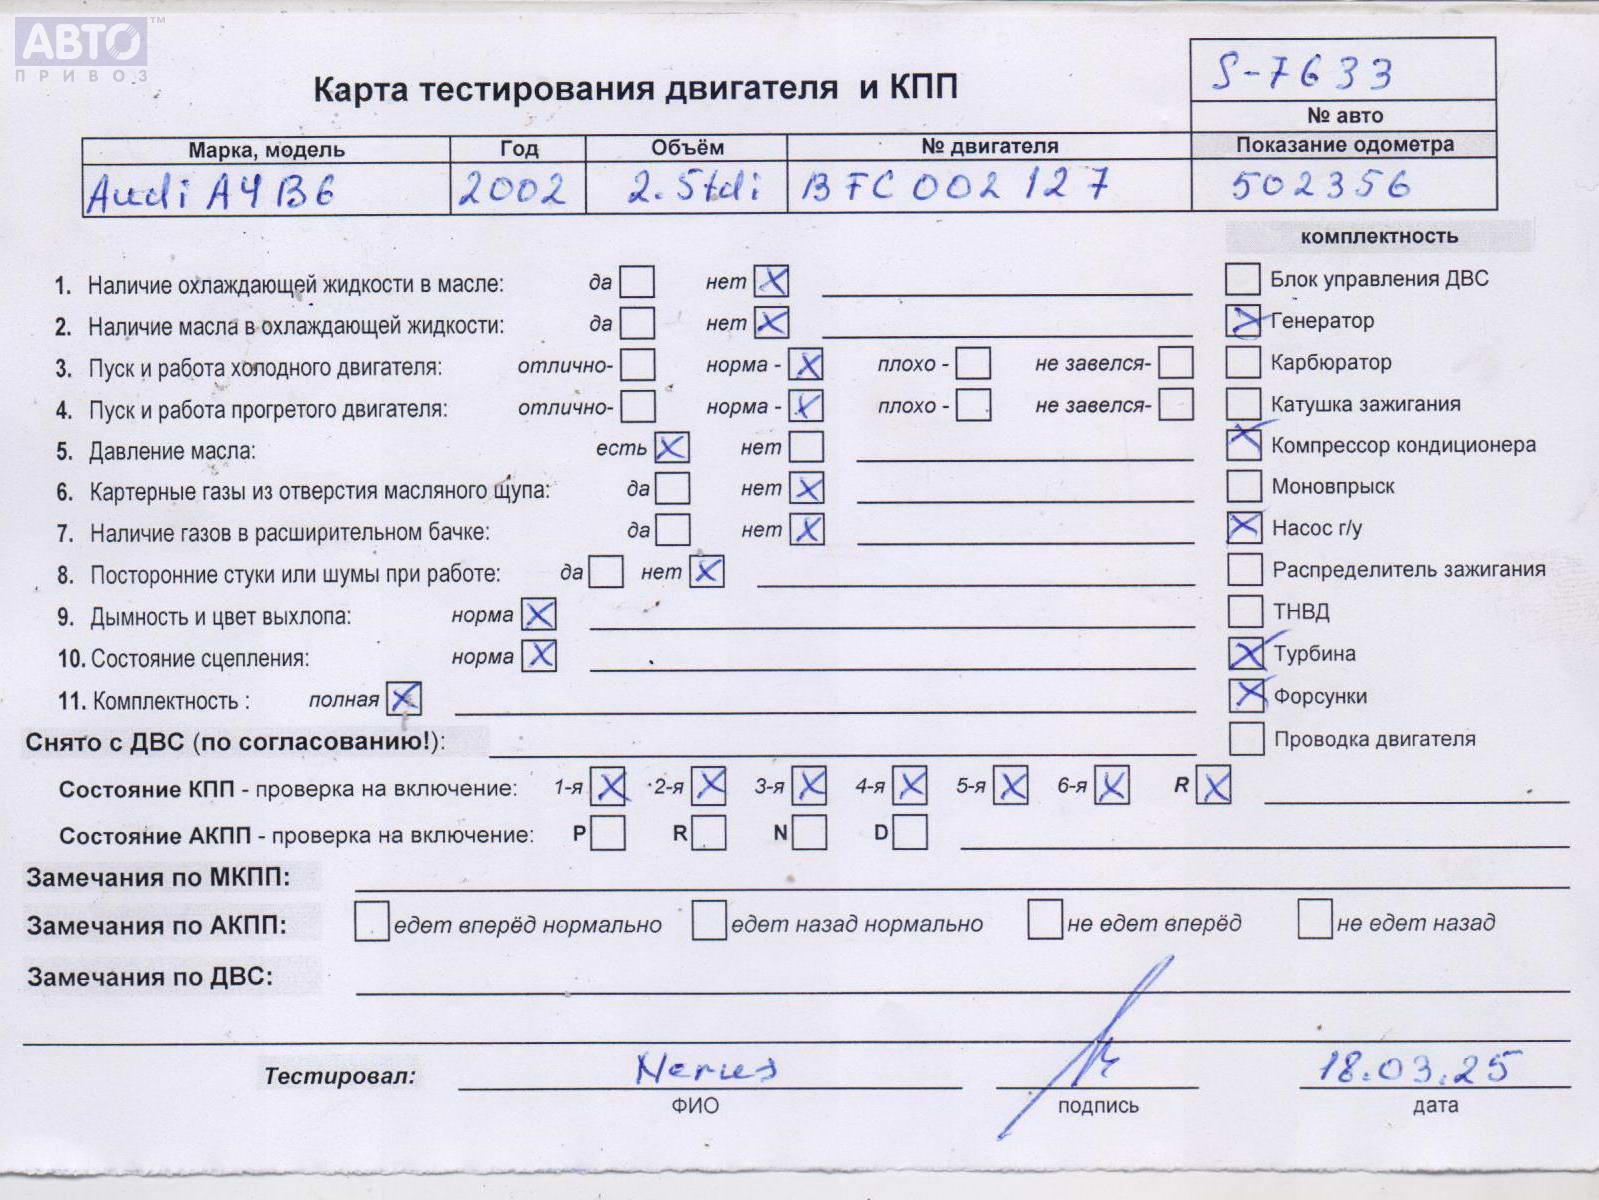 АВТО™
ПРИВОЗ
Карта тестирования двигателя и КПП
S-7633
№ авто
Марка, модель Год Объём № двигателя Показание одометра
Audi A4 B6 2002 2.5tdi BFC002127 502356
комплектность
1. Наличие охлаждающей жидкости в масле: да нет X
Блок управления ДВС
2. Наличие масла в охлаждающей жидкости: да нет X
X Генератор
3. Пуск и работа холодного двигателя: отлично- норма - X плохо - не завелся-
Карбюратор
4. Пуск и работа прогретого двигателя: отлично- норма - X плохо - не завелся-
Катушка зажигания
5. Давление масла: есть X нет
X Компрессор кондиционера
6. Картерные газы из отверстия масляного щупа: да нет X
Моновпрыск
7. Наличие газов в расширительном бачке: да нет X
X Насос г/у
8. Посторонние стуки или шумы при работе: да нет X
Распределитель зажигания
9. Дымность и цвет выхлопа: норма X
ТНВД
10. Состояние сцепления: норма X
X Турбина
11. Комплектность : полная X
X Форсунки
Снято с ДВС (по согласованию!):
Проводка двигателя
Состояние КПП - проверка на включение: 1-я X 2-я X 3-я X 4-я X 5-я X 6-я X R X
Состояние АКПП - проверка на включение: P R N D
Замечания по МКПП:
Замечания по АКПП: едет вперёд нормально едет назад нормально не едет вперёд не едет назад
Замечания по ДВС:
Тестировал: 18.03.25
ФИО подпись дата